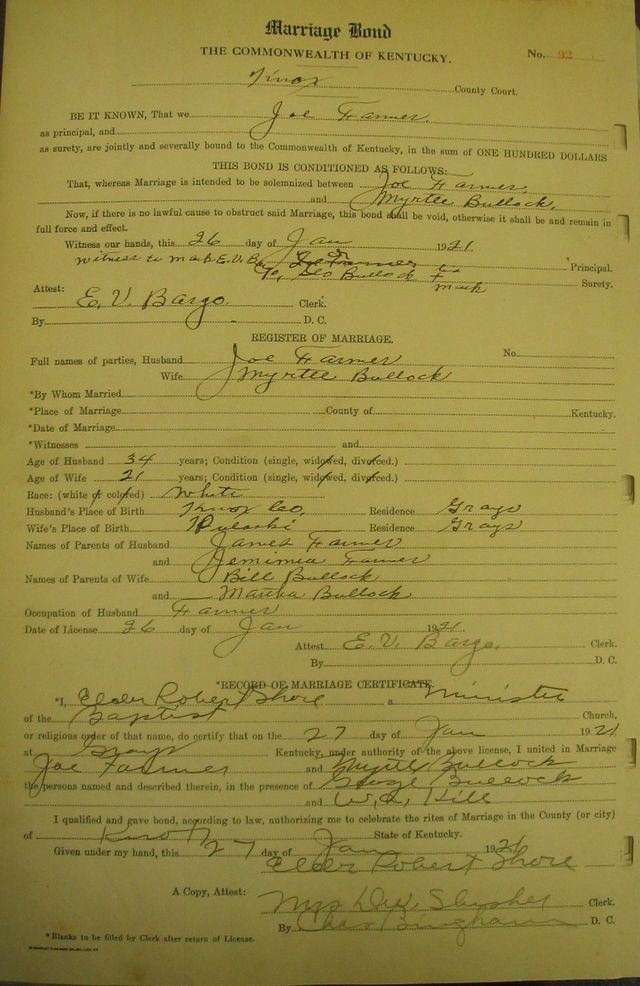 Marriage Bond
THE COMMONWEALTH OF KENTUCKY.
No. 92
Knox County Court.
BE IT KNOWN, That we Joe Farmer.
as principal, and
as surety, are jointly and severally bound to the Commonwealth of Kentucky, in the sum of ONE HUNDRED DOLLARS
THIS BOND IS CONDITIONED AS FOLLOWS:
That, whereas Marriage is intended to be solemnized between Joe Farmer,
and Myrtle Bullock.
Now, if there is no lawful cause to obstruct said Marriage, this bond shall be void, otherwise it shall be and remain in
full force and effect.
Witness our hands, this 26 day of Jan 1921
Witness to mark E.V.B. Joe Farmer Principal.
Geo Bullock his + mark Surety.
Attest:
E. V. Bargo. Clerk.
By D. C.
REGISTER OF MARRIAGE.
Full names of parties, Husband Joe Farmer No.
Wife Myrtle Bullock
*By Whom Married
*Place of Marriage County of Kentucky.
*Date of Marriage
*Witnesses and
Age of Husband 34 years; Condition (single, widowed, divorced.)
Age of Wife 21 years; Condition (single, widowed, divorced.)
Race: (white or colored) White
Husband's Place of Birth Knox Co, Residence Grays
Wife's Place of Birth Pulaski Residence Grays
Names of Parents of Husband James Farmer
and Jemimia Farmer
Names of Parents of Wife Bill Bullock
and Martha Bullock
Occupation of Husband Farmer
Date of License 26 day of Jan 1921
Attest E. V. Bargo, Clerk.
By D. C.
*RECORD OF MARRIAGE CERTIFICATE.
*I, Elder Robert Shore a Minister
of the Baptist Church,
or religious order of that name, do certify that on the 27 day of Jan 1921
at Grays Kentucky, under authority of the above license, I united in Marriage
Joe Farmer and Myrtle Bullock
the persons named and described therein, in the presence of Bullock
and Hill
I qualified and gave bond, according to law, authorizing me to celebrate the rites of Marriage in the County (or city)
of Knox State of Kentucky.
Given under my hand, this 27 day of Jan 1921
Elder Robert Shore
A Copy, Attest: Mrs D.W. Slusher Clerk.
By Chas Bingham D. C.
*Blanks to be filed by Clerk after return of License.